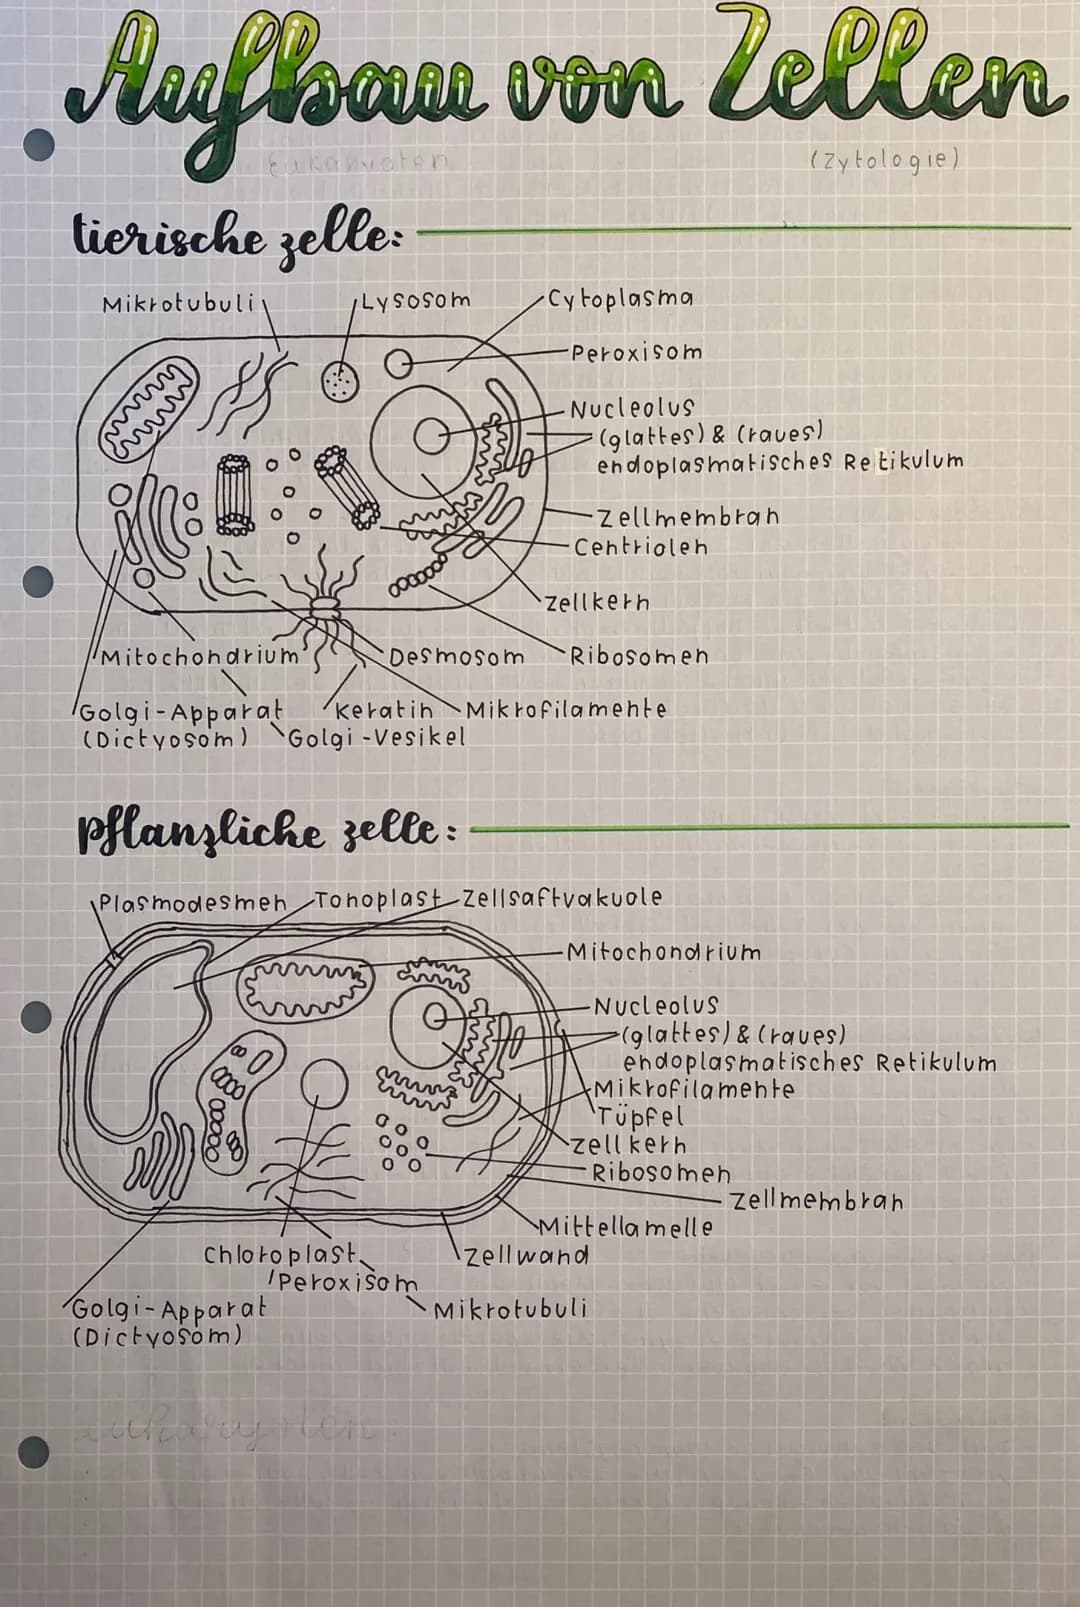 Aufbau von Zellen
Eukaryoten
(Zytologie)
tierische zelle:
Mikrotubuli
Lysosom
Cytoplasma
Peroxisom
Nucleolus
(glattes) & (raues)
endoplasmatisches Retikulum
Zellmembran
Centriolen
Zellkern
Mitochondrium
Desmosom
Ribosomen
Golgi-Apparat
Keratin
Mikrofilamente
(Dictyosom)
Golgi-Vesikel
pflanzliche zelle:
Plasmodesmen
Tonoplast
Zellsaftvakuole
Mitochondrium
Nucleolus
(glattes) & (raues)
endoplasmatisches Retikulum
Mikrofilamente
Tüpfel
Zellkern
Ribosomen
Zellmembran
Mittellamelle
Chloroplast
Zellwand
Peroxisom
Golgi-Apparat
Mikrotubuli
(Dictyosom)
eukaryoten